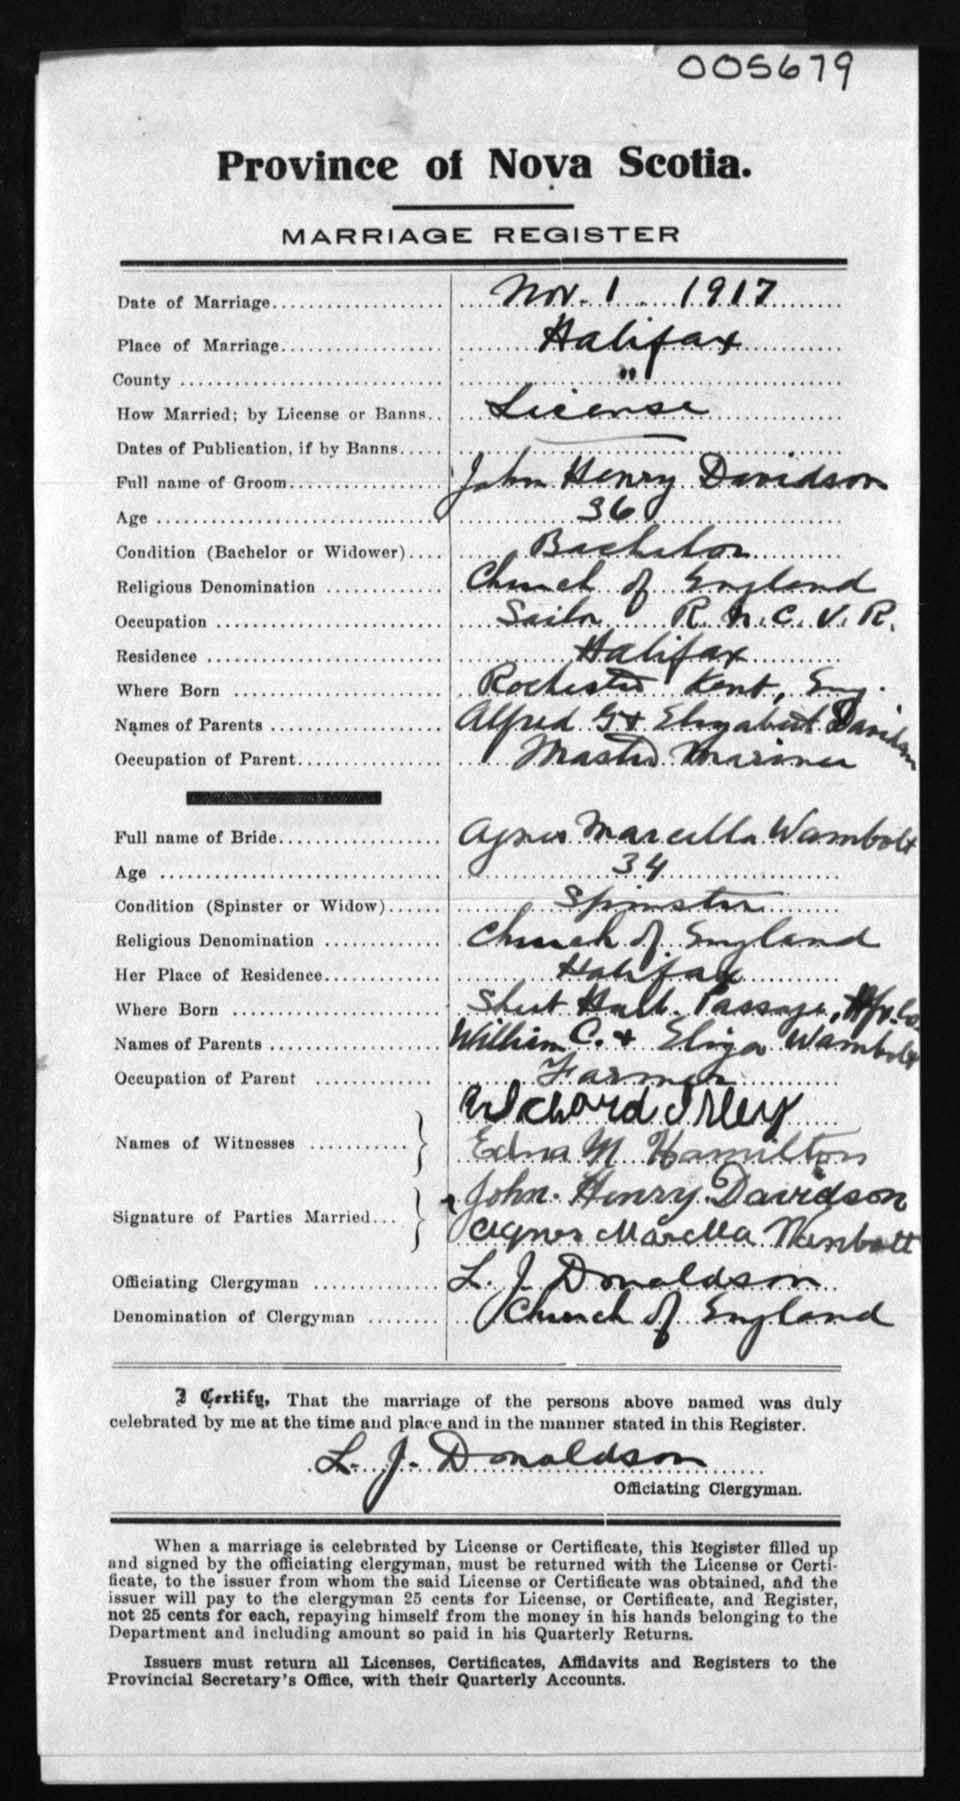 005679
Province of Nova Scotia.
MARRIAGE REGISTER
Date of Marriage Nov. 1. 1917
Place of Marriage Halifax
County "
How Married; by License or Banns License
Dates of Publication, if by Banns
Full name of Groom John Henry Davidson
Age 36
Condition (Bachelor or Widower) Bachelor
Religious Denomination Church of England
Occupation Sailor R. N. C. V. R.
Residence Halifax
Where Born Rochester Kent, Eng.
Names of Parents Alfred G + Elizabeth Davidson
Occupation of Parent Master Mariner
Full name of Bride Agnes Marcella Wambolt
Age 34
Condition (Spinster or Widow) Spinster
Religious Denomination Church of England
Her Place of Residence Halifax
Where Born Sheet Harb. Passage, Hfx. Co.
Names of Parents William C. + Eliza Wambolt
Occupation of Parent Farmer
Richard
Names of Witnesses
Edna M Hamilton
John. Henry. Davidson
Signature of Parties Married
Agnes Marcella Wambolt
Officiating Clergyman L. J. Donaldson
Denomination of Clergyman Church of England
I Certify, That the marriage of the persons above named was duly
celebrated by me at the time and place and in the manner stated in this Register.
L. J. Donaldson
Officiating Clergyman.
When a marriage is celebrated by License or Certificate, this Register filled up
and signed by the officiating clergyman, must be returned with the License or Certi-
ficate, to the issuer from whom the said License or Certificate was obtained, and the
issuer will pay to the clergyman 25 cents for License, or Certificate, and Register,
not 25 cents for each, repaying himself from the money in his hands belonging to the
Department and including amount so paid in his Quarterly Returns.
Issuers must return all Licenses, Certificates, Affidavits and Registers to the
Provincial Secretary's Office, with their Quarterly Accounts.